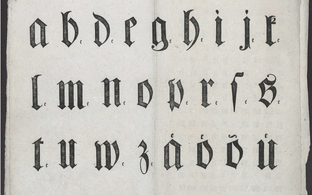 a b d e g h i j k
l m n o p r ſ s
t u w z å ö ő ů